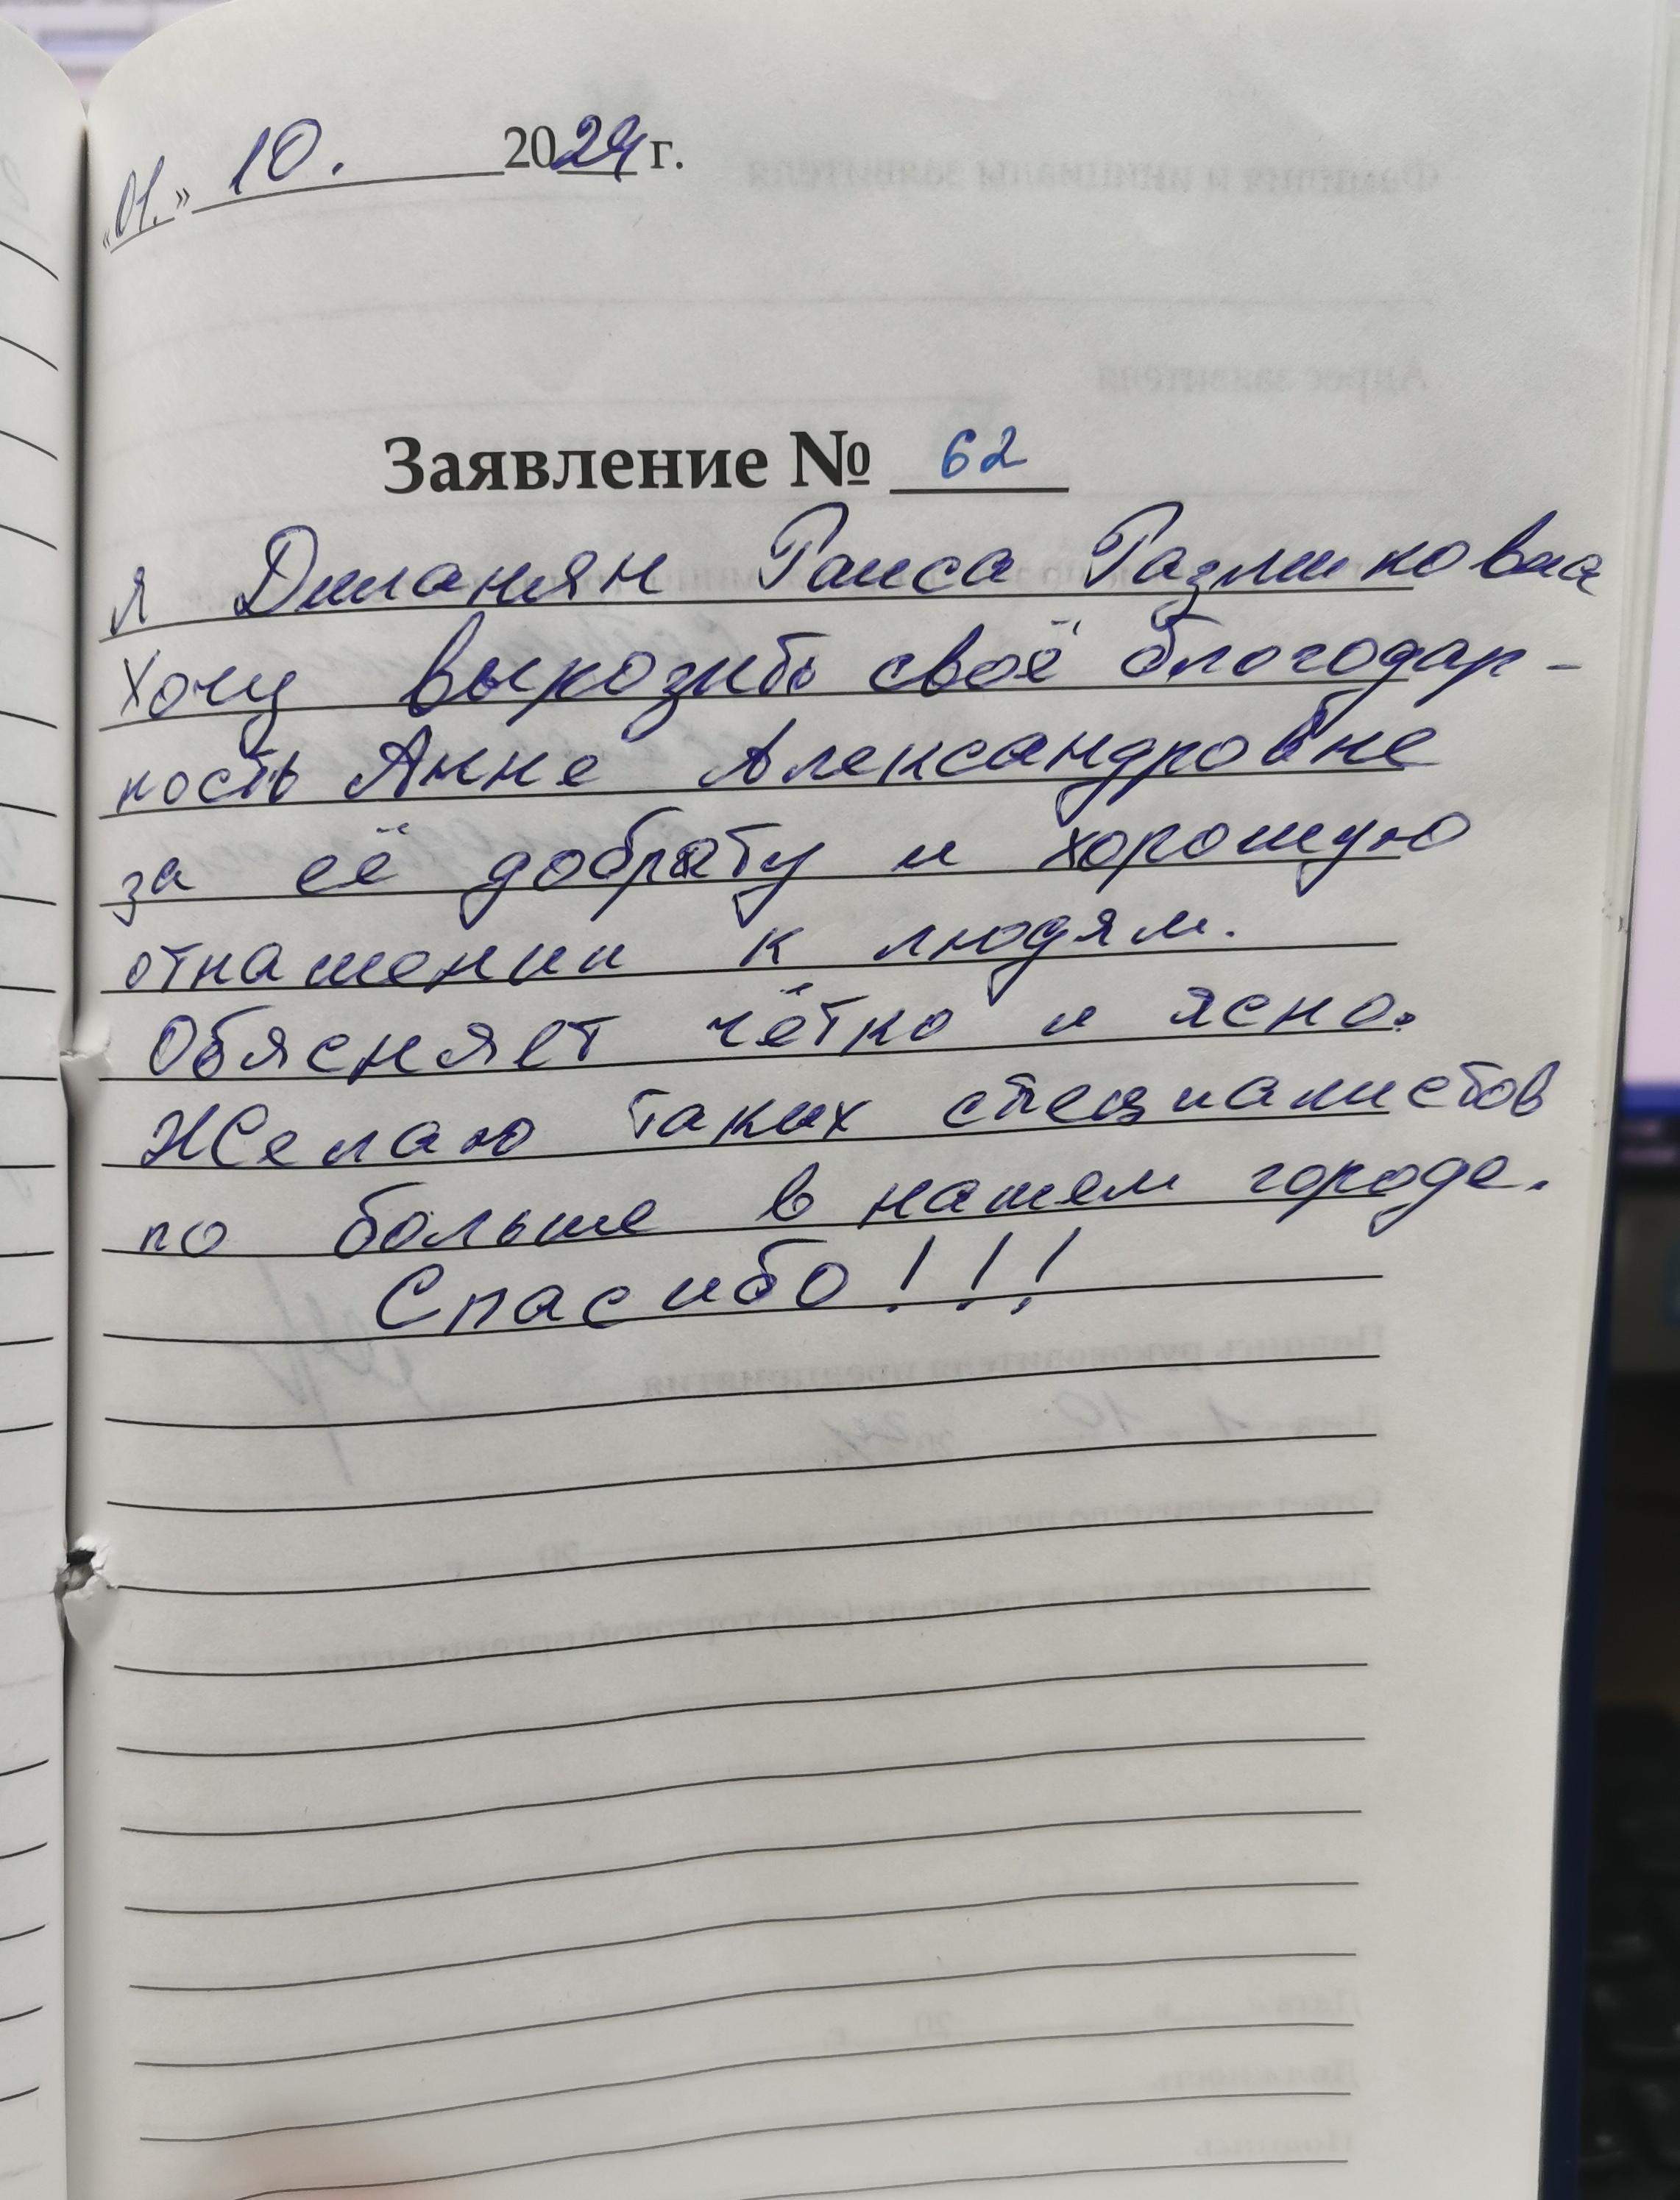 «01.» 10. 2024 г.
Заявление № 62
я Диланян Раиса Размиковна
Хочу выразить своё благодар-
ность Анне Александровне
за её доброту и хорошую
отнашении к людям.
Обясняет чётко и ясно.
Желаю таких специалистов
по больше в нашем городе.
Спасибо!!!